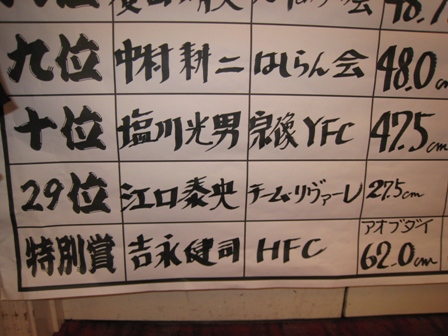 九位 中村耕二 はしらん会 48.0cm
十位 塩川光男 宗像YFC 47.5cm
29位 江口泰央 チームリヴァーレ 27.5cm
特別賞 吉永健司 HFC アオブダイ 62.0cm